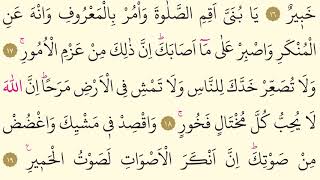 خَب۪يرٌ ﴿١٦﴾ يَا بُنَيَّ اَقِمِ الصَّلٰوةَ وَأْمُرْ بِالْمَعْرُوفِ وَانْهَ عَنِ
الْمُنْكَرِ وَاصْبِرْ عَلٰى مَٓا اَصَابَكَۜ اِنَّ ذٰلِكَ مِنْ عَزْمِ الْاُمُورِۚ ﴿١٧﴾
وَلَا تُصَعِّرْ خَدَّكَ لِلنَّاسِ وَلَا تَمْشِ فِي الْاَرْضِ مَرَحًاۜ اِنَّ اللّٰهَ
لَا يُحِبُّ كُلَّ مُخْتَالٍ فَخُورٍۚ ﴿١٨﴾ وَاقْصِدْ ف۪ي مَشْيِكَ وَاغْضُضْ
مِنْ صَوْتِكَۜ اِنَّ اَنْكَرَ الْاَصْوَاتِ لَصَوْتُ الْحَم۪يرِ۟ ﴿١٩﴾